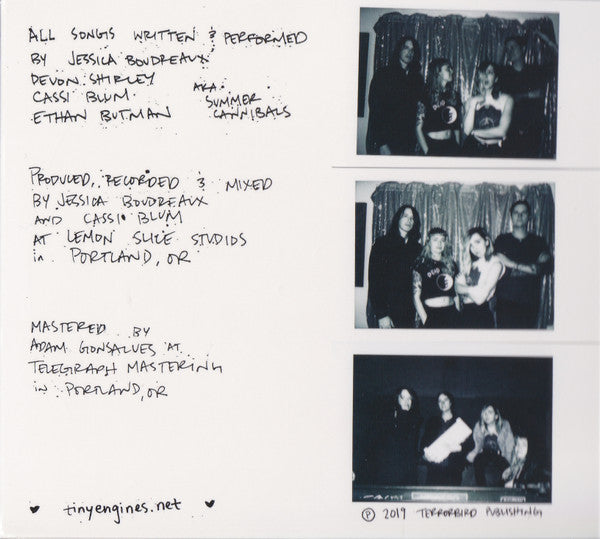 ALL SONGS WRITTEN & PERFORMED
BY JESSICA BOUDREAUX
DEVON SHIRLEY
CASSI BLUM
ETHAN BUTMAN
AKA
SUMMER
CANNIBALS
PRODUCED, RECORDED & MIXED
BY JESSICA BOUDREAUX
AND CASSI BLUM
AT LEMON SLICE STUDIOS
in PORTLAND, OR
MASTERED BY
ADAM GONSALVES AT
TELEGRAPH MASTERING
in PORTLAND, OR
♥ tinyengines.net ♥
DEAD
℗ 2019 TERRORBIRD PUBLISHING